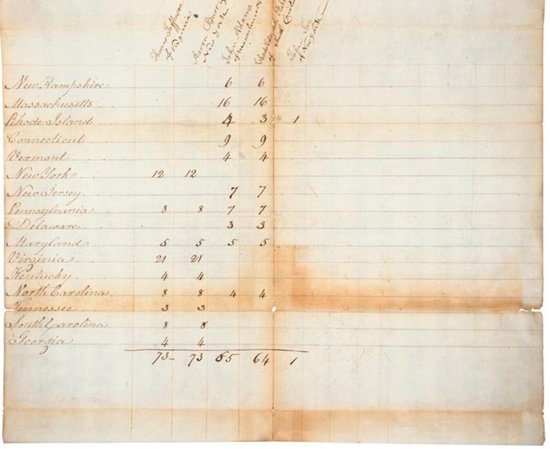 Thomas Jefferson of Virginia
Aaron Burr New York
John Adams
John Jay of New York
New Hampshire 6 6
Massachusetts 16 16
Rhode Island 4 3 1
Connecticut 9 9
Vermont 4 4
New York 12 12
New Jersey 7 7
Pennsylvania 8 8 7 7
Delaware 3 3
Maryland 5 5 5 5
Virginia 21 21
Kentucky 4 4
North Carolina 8 8 4 4
Tennessee 3 3
South Carolina 8 8
Georgia 4 4
73 73 65 64 1